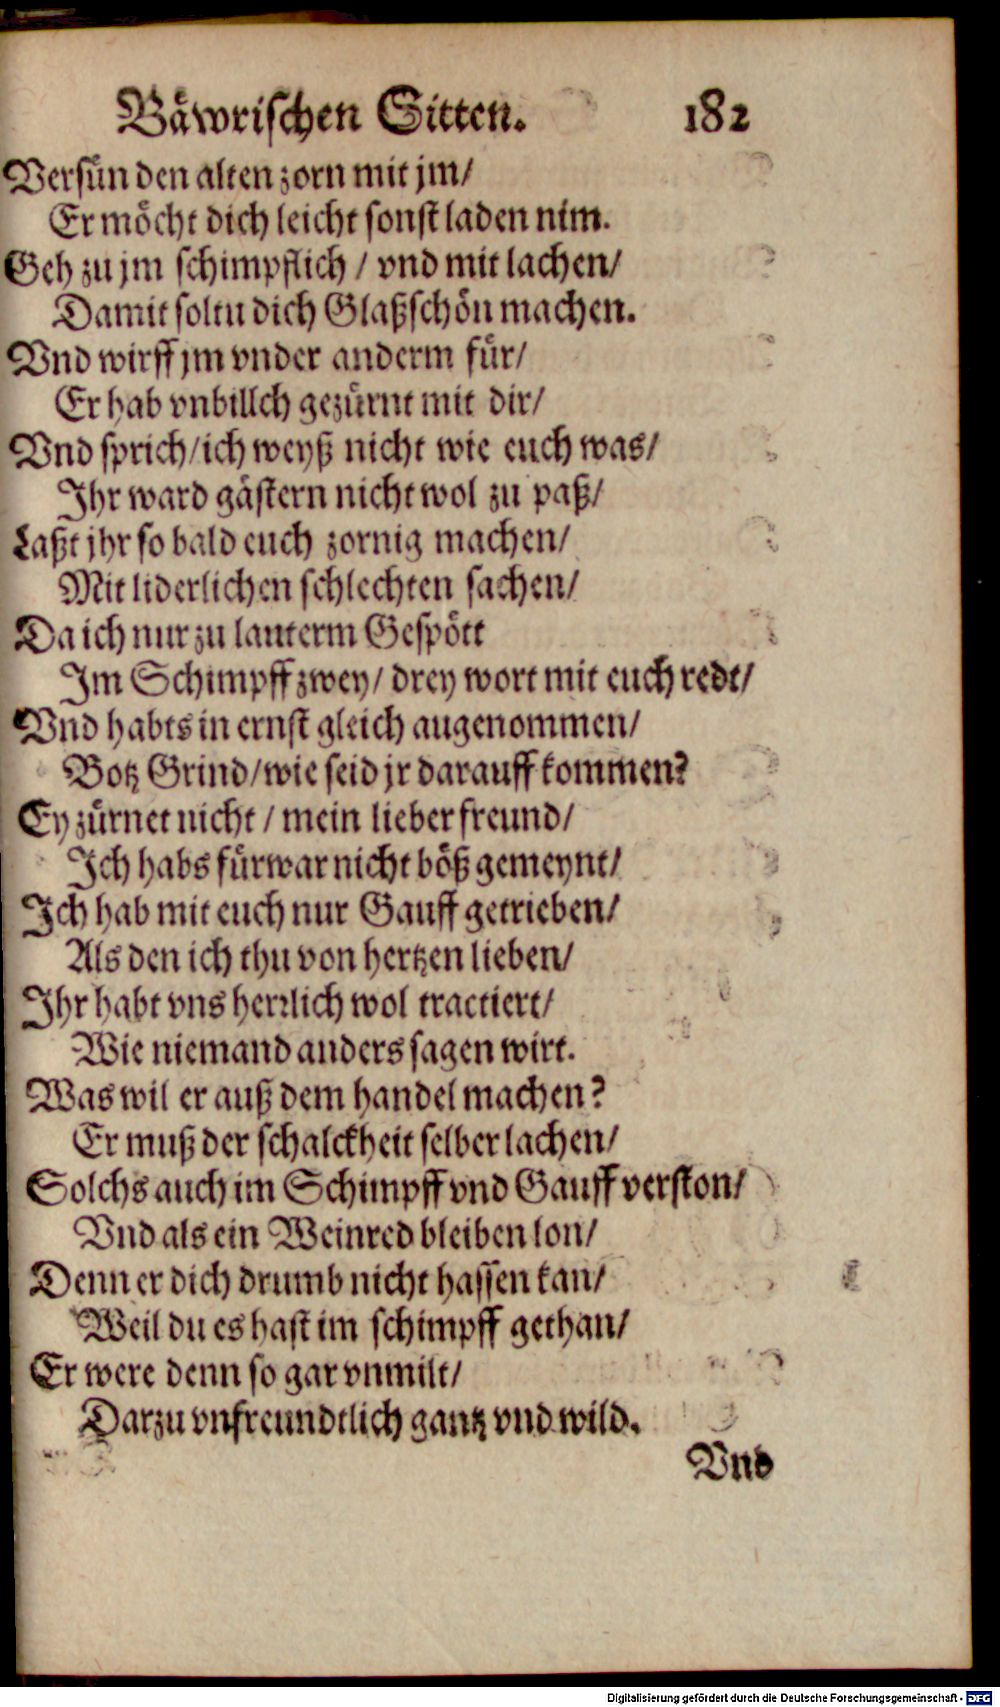 Bäwrischen Sitten. 182
Versün den alten zorn mit jm/
Er möcht dich leicht sonst laden nim.
Geh zu jm schimpflich / vnd mit lachen/
Damit soltu dich Glaßschön machen.
Vnd wirff jm vnder anderm für/
Er hab vnbillch gezürnt mit dir/
Vnd sprich/ich weyß nicht wie euch was/
Ihr ward gästern nicht wol zu paß/
Laßt jhr so bald euch zornig machen/
Mit liderlichen schlechten sachen/
Da ich nur zu lauterm Gespött
Im Schimpff zwey/ drey wort mit euch redt/
Vnd habts in ernst gleich augenommen/
Botz Grind/wie seid jr darauff kommen?
Ey zürnet nicht / mein lieber freund/
Ich habs fürwar nicht böß gemeynt/
Ich hab mit euch nur Gauff getrieben/
Als den ich thu von hertzen lieben/
Ihr habt vns herrlich wol tractiert/
Wie niemand anders sagen wirt.
Was wil er auß dem handel machen?
Er muß der schalckheit selber lachen/
Solchs auch im Schimpff vnd Gauff verston/
Vnd als ein Weinred bleiben lon/
Denn er dich drumb nicht hassen kan/
Weil du es hast im schimpff gethan/
Er were denn so gar vnmilt/
Darzu vnfreundtlich gantz vnd wild.
Vnd
Digitalisierung gefördert durch die Deutsche Forschungsgemeinschaft - DFG